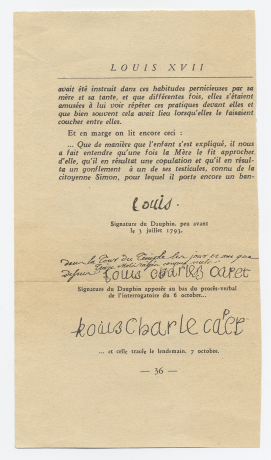 LOUIS XVII
avait été instruit dans ces habitudes pernicieuses par sa
mère et sa tante, et que différentes fois, elles s'étaient
amusées à lui voir répéter ces pratiques devant elles et
que bien souvent cela avait lieu lorsqu'elles le faisaient
coucher entre elles.
Et en marge on lit encore ceci :
... Que de manière que l'enfant s'est expliqué, il nous
a fait entendre qu'une fois la Mère le fit approcher
d'elle, qu'il en résulta une copulation et qu'il en résul-
ta un gonflement à un de ses testicules, connu de la
citoyenne Simon, pour lequel il porte encore un ban-
Louis.
Signature du Dauphin, peu avant
le 3 juillet 1793.
dans la Tour du Temple les jour et an que
Louis Charles Capet
Signature du Dauphin apposée au bas du procès-verbal
de l'interrogatoire du 6 octobre...
Louis Charle Capet
... et celle tracée le lendemain, 7 octobre.
— 36 —